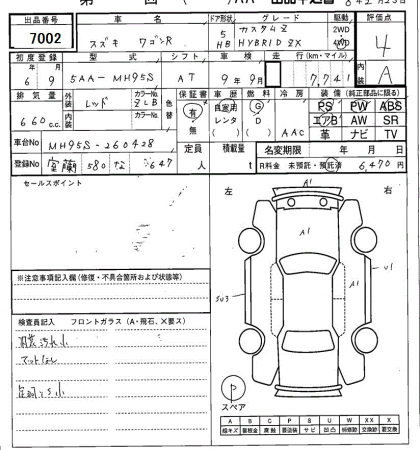 出品番号 車名 ドア形状 グレード 駆動 評価点
7002 スズキ ワゴンR 5 HB カスタムZ HYBRID ZX 2WD 4WD 4
初度登録 型式 シフト 車検 走行(km・マイル) 内装
6 9 5AA-MH95S AT 9年9月 7,741 A
排気量 外装 カラーNo. 色替 保証書 車歴 燃料 冷房 装備(純正部品に限る)
660c.c. レッド ZLB 有 自家用 G PS PW ABS
内装 カラーNo. 無 レンタ D AAC エアB AW SR
( ) 革 ナビ TV
車台No MH95S-260428 定員 人 積載量 t 名変期限 年 月 日
登録No 室蘭 580 な 647 R料金 未預託・預託済 6,470円
セールスポイント 左 右
A1
A1
U1
SU3
A1
※注意事項記入欄(修復・不具合箇所および状態等)
検査員記入 フロントガラス(A・飛石、X要ス)
内装汚れ小
マットなし
P
スペア
A B C P S U W XX X
線キズ 要板金 腐蝕 要塗装 サビ 凹凸 補修跡 交換跡 要交換